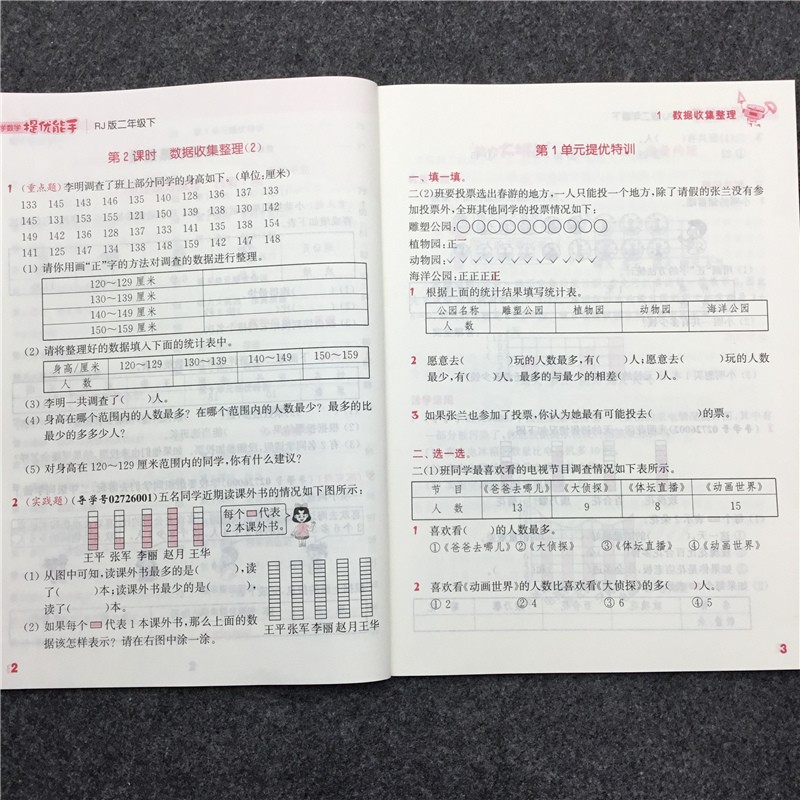 学数学 提优能手 RJ版二年级下
第2课时 数据收集整理(2)
1 (重点题)李明调查了班上部分同学的身高如下。(单位:厘米)
133 145 143 146 135 140 128 136 137 133
145 131 153 155 121 150 139 138 130 142
149 142 136 128 137 135 133 144 151 152
141 125 147 134 138 148 159 142 147 148
(1) 请你用画“正”字的方法对调查的数据进行整理。
120～129厘米
130～139厘米
140～149厘米
150～159厘米
(2) 请将整理好的数据填入下面的统计表中。
身高/厘米 120～129 130～139 140～149 150～159
人 数
(3) 李明一共调查了( )人。
(4) 身高在哪个范围内的人数最多？在哪个范围内的人数最少？最多的比
最少的多多少人？
(5) 对身高在120～129厘米范围内的同学,你有什么建议？
2 (实践题)(导学号02726001)五名同学近期读课外书的情况如下图所示:
每个 代表
2本课外书。
王平 张军 李丽 赵月 王华
(1) 从图中可知,读课外书最多的是( ),读
了( )本;读课外书最少的是( ),
读了( )本。
(2) 如果每个 代表1本课外书,那么上面的数
据该怎样表示？请在右图中涂一涂。
王平 张军 李丽 赵月 王华
2
1 数据收集整理
第1单元提优特训
一、填一填。
二(2)班要投票选出春游的地方,一人只能投一个地方,除了请假的张兰没有参
加投票外,全班其他同学的投票情况如下:
雕塑公园:○○○○○○○○○○
植物园:正
动物园:✓✓✓✓✓✓✓✓✓✓✓✓✓
海洋公园:正正正正
1 根据上面的统计结果填写统计表。
公园名称 雕塑公园 植物园 动物园 海洋公园
人 数
2 愿意去( )玩的人数最多,有( )人;愿意去( )玩的人数
最少,有( )人。最多的与最少的相差( )人。
3 如果张兰也参加了投票,你认为她最有可能投去( )的票。
二、选一选。
二(1)班同学最喜欢看的电视节目调查情况如下表所示。
节 目 《爸爸去哪儿》 《大侦探》 《体坛直播》 《动画世界》
人 数 13 9 8 15
1 喜欢看( )的人数最多。
①《爸爸去哪儿》 ②《大侦探》 ③《体坛直播》 ④《动画世界》
2 喜欢看《动画世界》的人数比喜欢看《大侦探》的多( )人。
① 2 ② 4 ③ 6 ④ 5
3